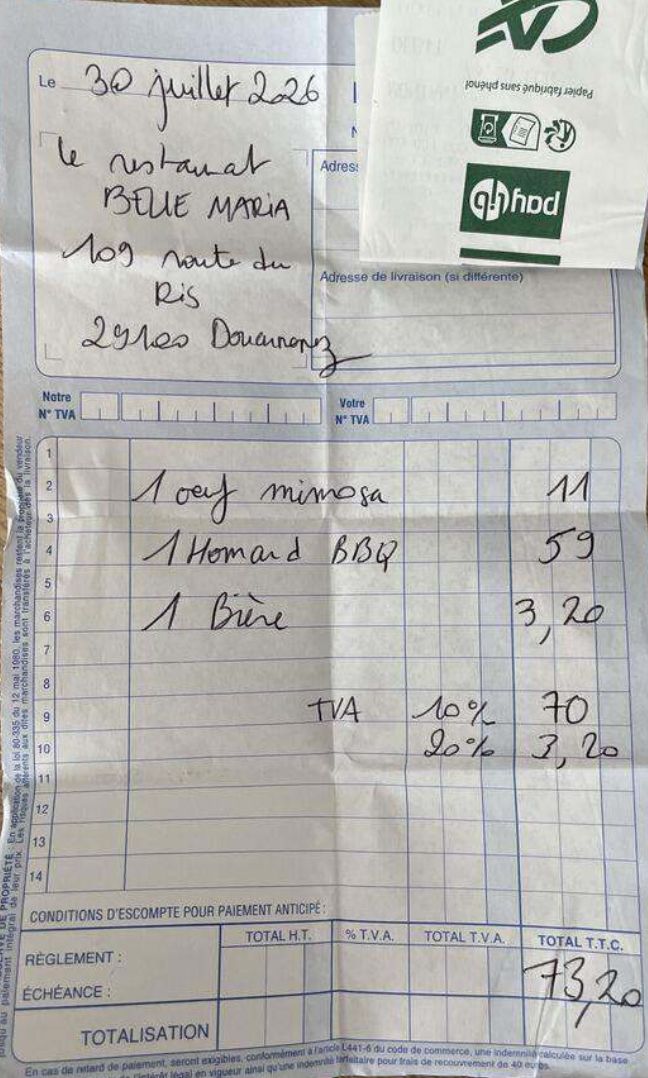 Papier fabriqué sans phénol
paylib
Le 30 juillet 2026
le restaurat
BELLE MARIA
109 route du
Ris
29100 Douarnenez
Adresse de livraison (si différente)
Notre
N° TVA
Votre
N° TVA
1
2 1 oeuf mimosa 11
3
4 1 Homard BBQ 59
5
6 1 Bière 3,20
7
8
9 TVA 10% 70
10 20% 3,20
11
12
13
14
CONDITIONS D'ESCOMPTE POUR PAIEMENT ANTICIPÉ :
TOTAL H.T. % T.V.A. TOTAL T.V.A. TOTAL T.T.C.
RÈGLEMENT :
ÉCHÉANCE :
73,20
TOTALISATION
En cas de retard de paiement, seront exigibles, conformément à l'article L441-6 du code de commerce, une indemnité calculée sur la base
de l'intérêt légal en vigueur ainsi qu'une indemnité forfaitaire pour frais de recouvrement de 40 euros.
DE PROPRIÉTÉ : En application de la loi 80-335 du 12 mai 1980, les marchandises restent la propriété du vendeur
jusqu'au paiement intégral de leur prix. Les risques afférents aux dites marchandises sont transférés à l'acheteur dès la livraison.